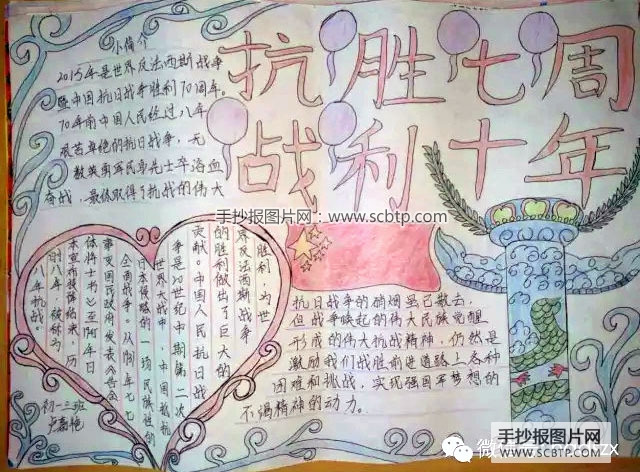 抗战
胜利
七十
周年
小简介
2015年是世界反法西斯战争
暨中国抗日战争胜利70周年。
70年前中国人民经过八年
艰苦卓绝的抗日战争,无
数英勇军民率先士卒浴血
奋战,最终取得了抗战的伟大
胜利,为世
界反法西斯战争
的胜利做出了巨大的
贡献。中国人民抗日战
争是20世纪中期第二次
世界大战中,中国抵抗
日本侵略的一场民族性的
全面战争。从年七七
事变国民政府发表《告全
体将士书》至年日
本宣布投降结束,历
时八年,被称为
八年抗战。
初一三班
抗日战争的硝烟虽已散去,
但战争唤起的伟大民族觉醒
形成的伟大抗战精神,仍然是
激励我们战胜前进道路上各种
困难和挑战,实现强国军梦想的
不竭精神的动力。
手抄报图片网:www.scbtp.com
手抄报图片网
WWW.SCBTP.COM